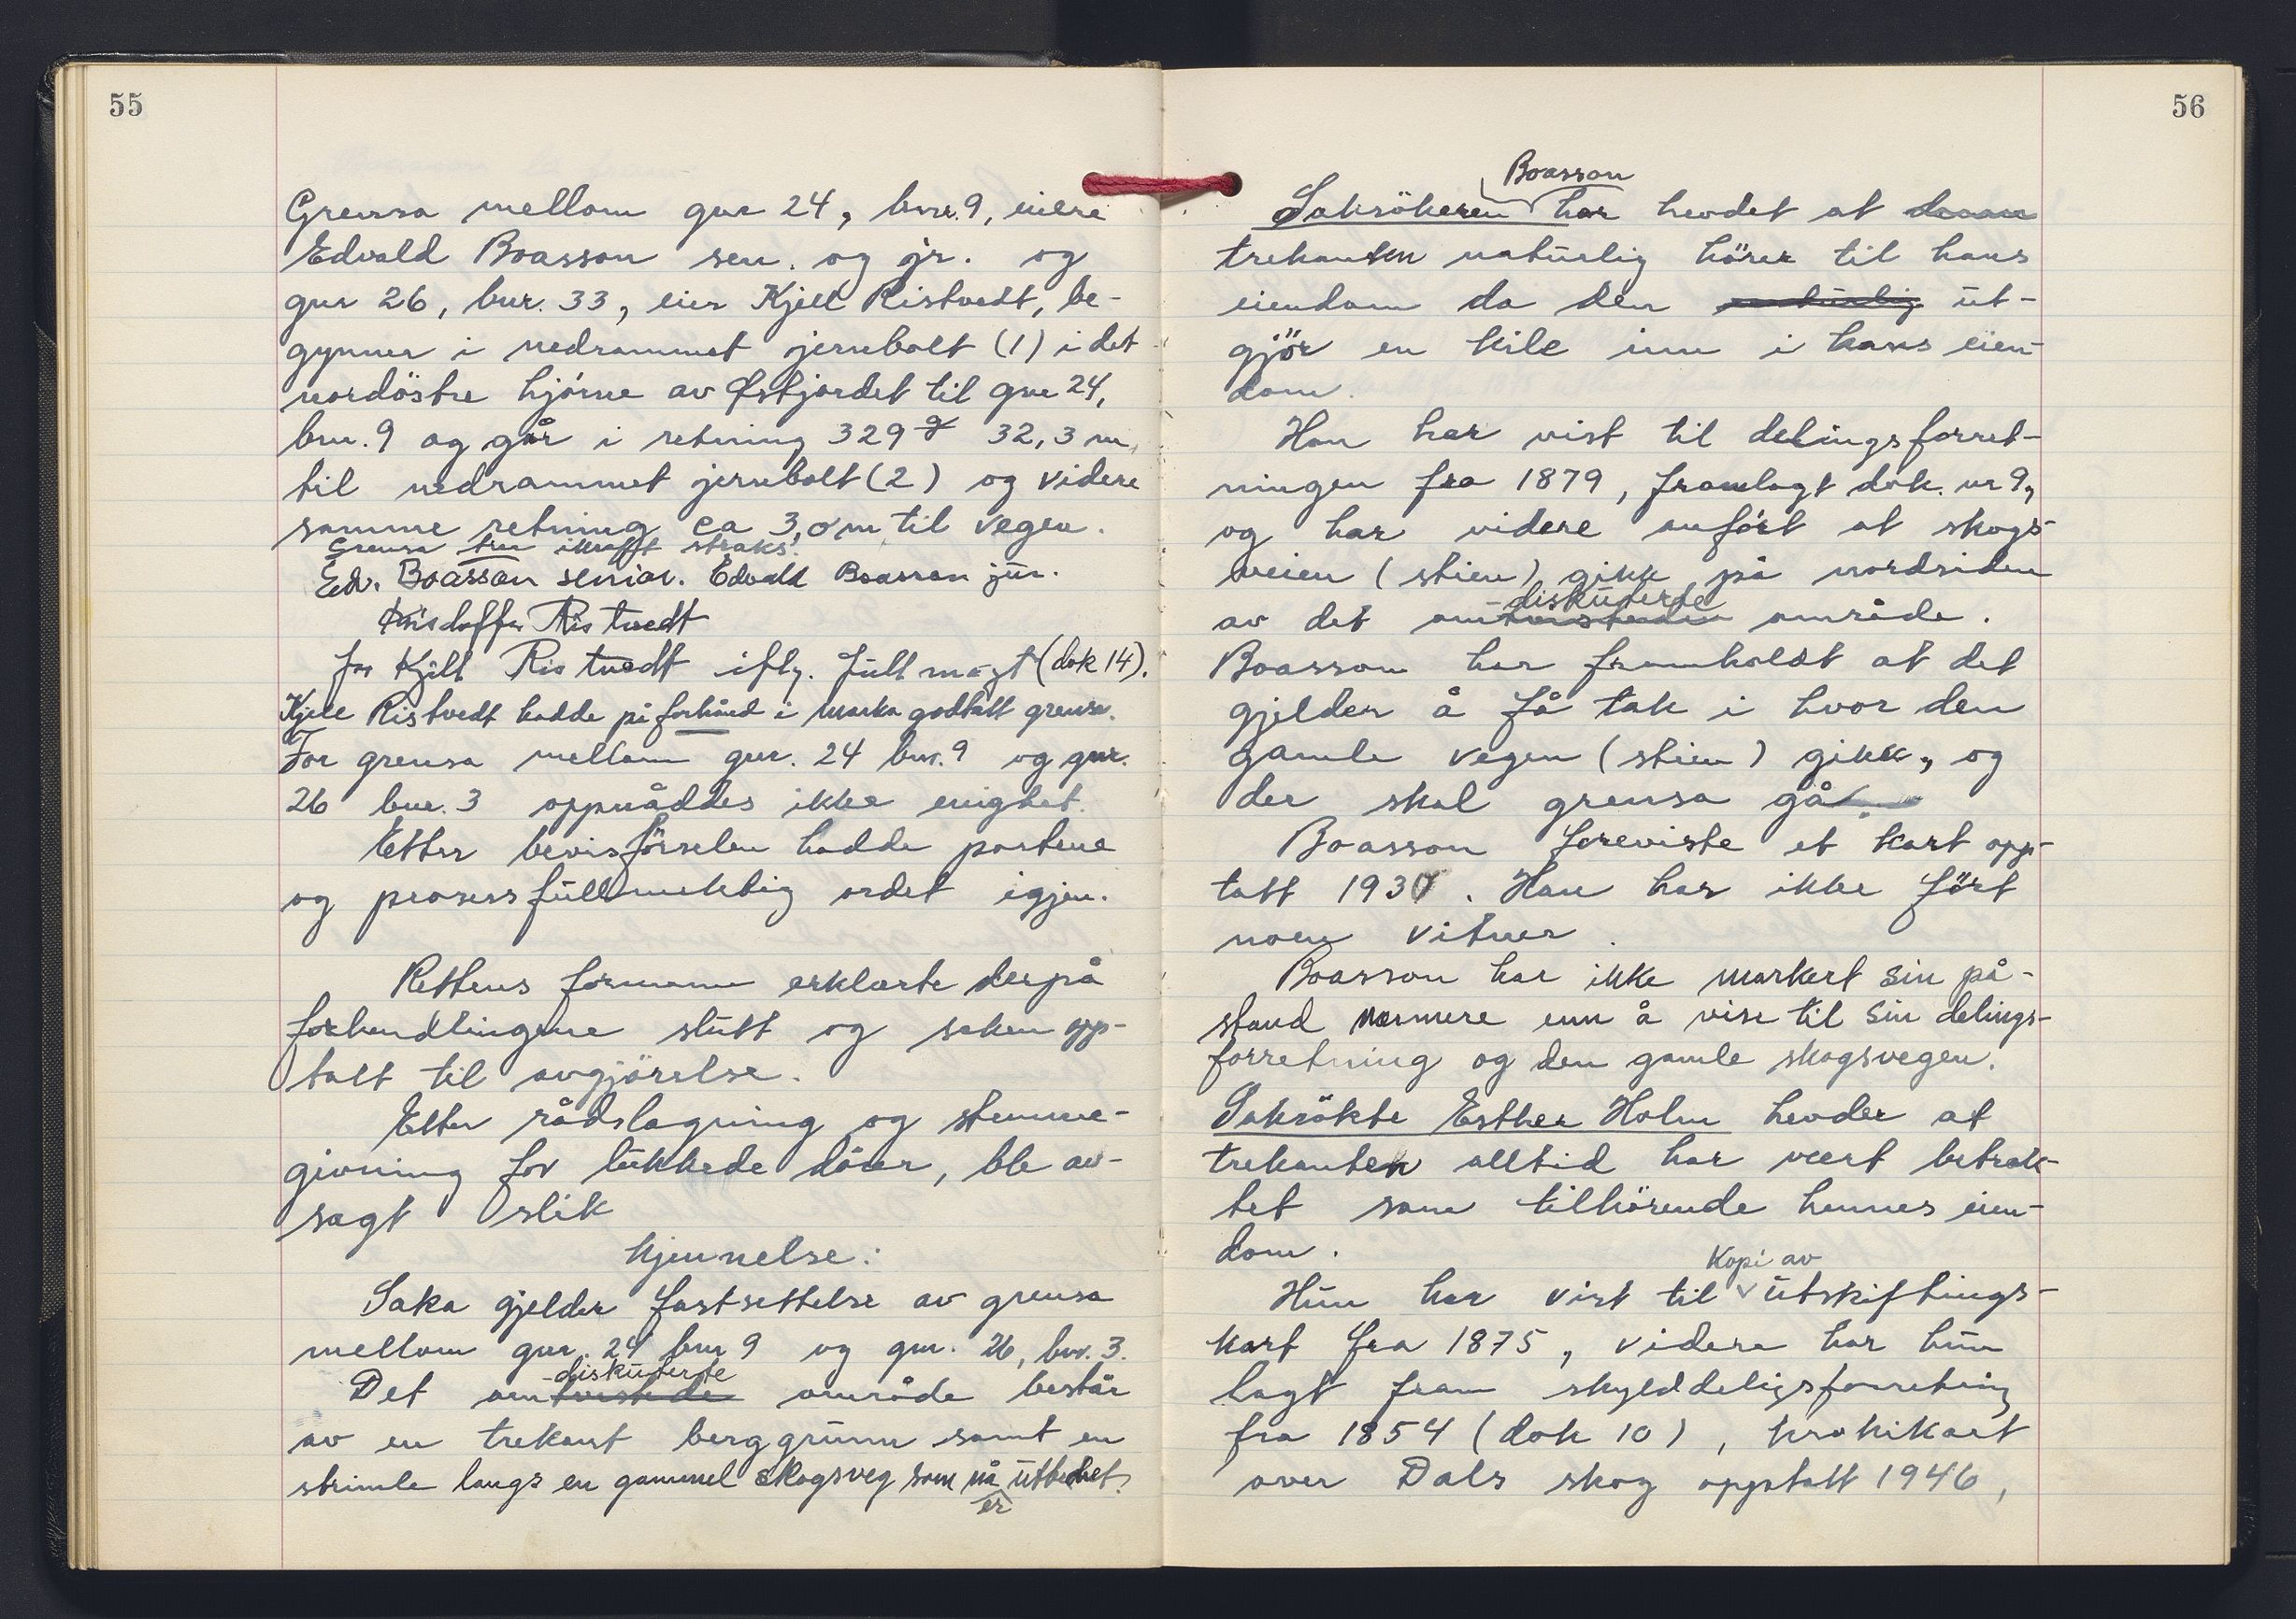 55
Grensa mellom gnr 24, bnr. 9, eiere
Edvald Boasson sen. og jr. og
gnr 26, bnr. 33, eier Kjell Ristvedt, be-
gynner i nedrammet jernbolt (1) i det
nordöstre hjørne av Østjordet til gnr 24,
bnr. 9 og går i retning 329 g 32,3 m,
til nedrammet jernbolt (2) og videre
samme retning ca 3,0 m til vegen.
Grensa trer ikraft straks.
Edv. Boasson senior. Edvald Boasson jun.
Kristoffer Ristvedt
for Kjell Ristvedt iflg. fullmagt (dok 14).
Kjell Ristvedt hadde på forhånd i marka godtatt grensa.
For grensa mellom gnr. 24 bnr. 9 og gnr.
26 bnr. 3 oppnåddes ikke enighet.
Etter bevisförselen hadde partene
og prosessfullmektig ordet igjen.
Rettens formann erklærte derpå
forhandlingene slutt og saken opp-
tatt til avgjörelse.
Etter rådslagning og stemme-
givning for lukkede dörer, ble av-
sagt slik
kjennelse:
Saka gjelder fastsettelse av grensa
mellom gnr. 24 bnr 9 og gnr. 26, bnr. 3.
diskuterte
Det omtvistede område består
av en trekant berggrunn samt en
strimle langs en gammel skogsveg som nå utbedret.
er
56
Boasson
Saksökeren har hevdet at denne
trekanten naturlig hörer til hans
eiendom da den naturlig ut-
gjör en kile inn i hans eien-
dom.
Han har vist til delingsforret-
ningen fra 1879, framlagt dok. nr 9,
og har videre anfört at skogs-
veien (stien) gikk på nordsiden
diskuterte
av det omtvistede område.
Boasson har framholdt at det
gjelder å få tak i hvor den
gamle vegen (stien) gikk, og
der skal grensa gå
Boasson foreviste et kart opp-
tatt 1930. Han har ikke fört
noen vitner.
Boasson har ikke markert sin på-
stand nærmere enn å vise til sin delings-
forretning og den gamle skogsvegen.
Saksökte Esther Holm hevder at
trekanten alltid har vært betrak-
tet som tilhörende hennes eien-
dom.
Kopi av
Hun har vist til utskiftings-
kart fra 1875, videre har hun
lagt fram skylddeligsforretning
fra 1854 (dok 10), krokikart
over Dals skog opptatt 1946,